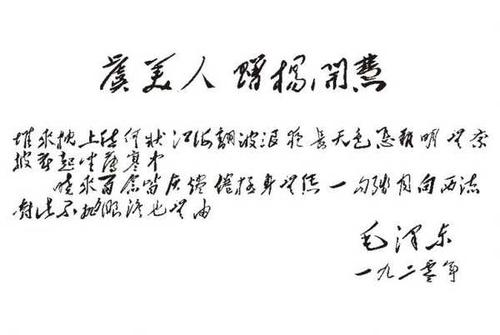 虞美人 赠杨开慧
堆来枕上愁何状 江海翻波浪 夜长天色总难明 无奈
披衣起坐薄寒中
晓来百念皆灰烬 倦极身无凭 一勾残月向西流
对此不抛眼泪也无由
毛泽东
一九二零年